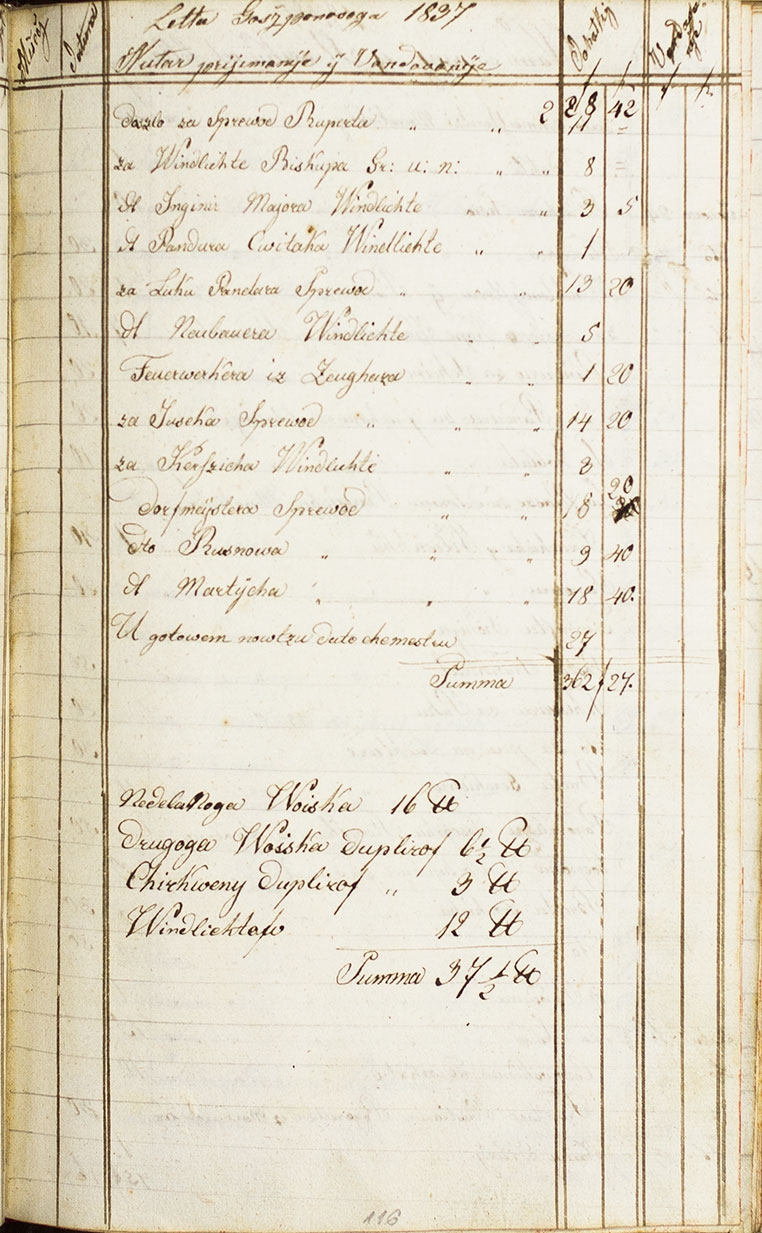 Letta Goszponovoga 1837
Nutar prijimanje ÿ Vandavanÿe
doszlo za Sprewod Ruperta " " 2 28 42
11 =
za Windlichte Biskupa Gr: u: n: " " 8 =
dt Inginir Majora Windlichte " 3 5
dt Pandura Cwitaka Windlichte " " 1
za Luku Pandara Sprewod " " 13 20
dt Neubauera Windlichte " " 5
Feuerwerkera iz Zeughaza " " 1 20
za Juscha Sprewod " " " 14 20
za Kerszicha Windlichte " " 8
Dorfmeÿstera Sprewod " " 18 20
dto Rusnowa " " " 9 40
dt Martÿcha " " " 18 40.
U gotowem nowtzu dato chemestru 27
Summa 362 / 27.
Nedelanoga Woiska 16 ℔
Drugoga Woiska Duplirof 6 1/2 ℔
Chirkweny Duplirof " 3 ℔
Windlichtof 12 ℔
Summa 37 1/2 ℔
116